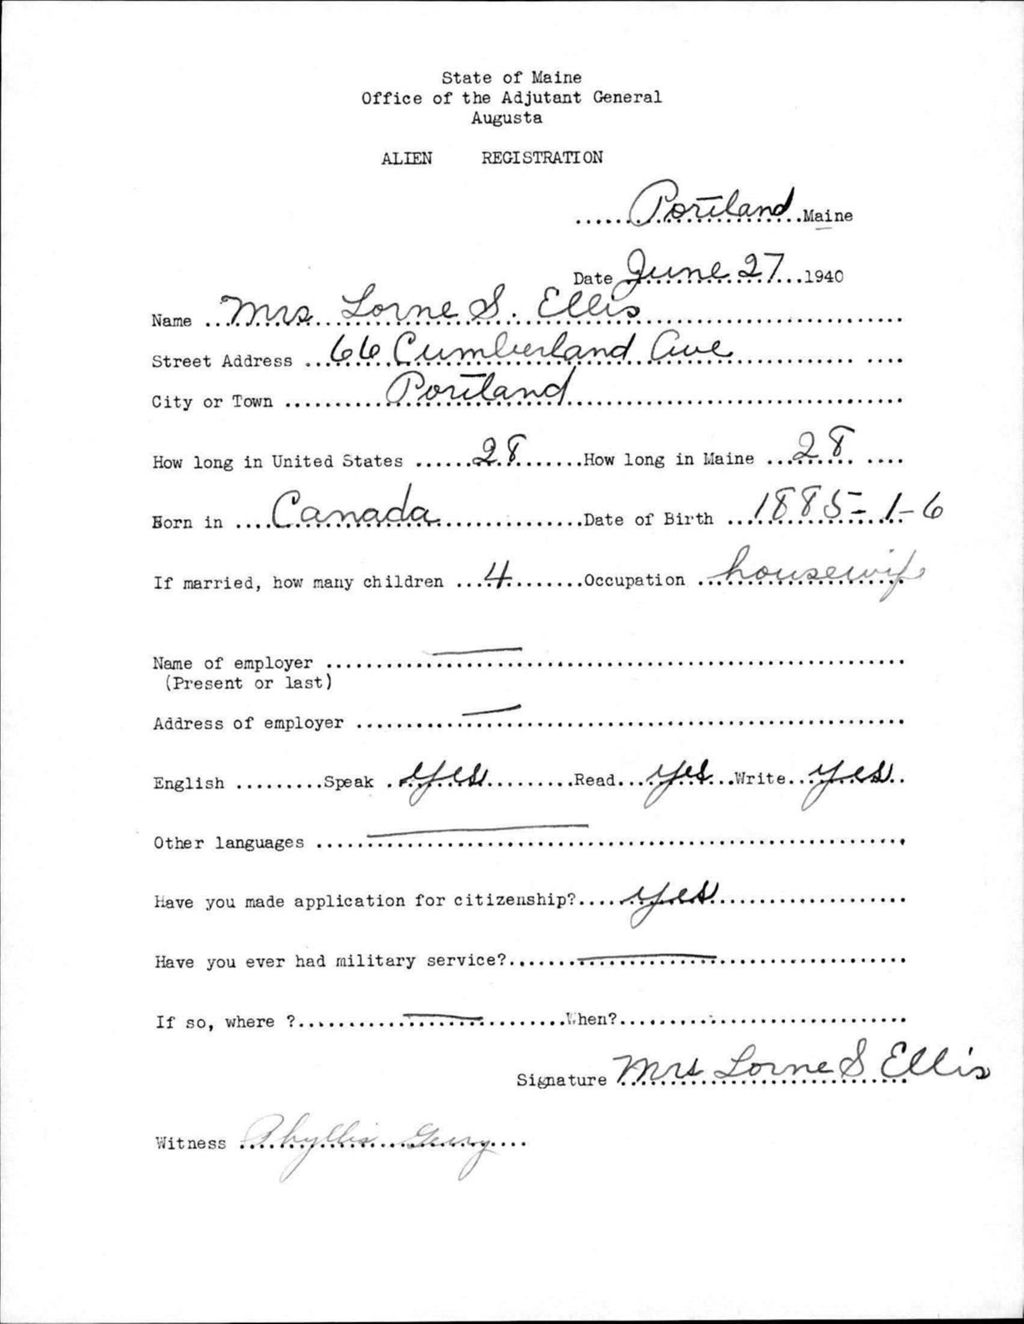 State of Maine
Office of the Adjutant General
Augusta
ALIEN REGISTRATION
......Portland.Maine
Date June 27...1940
Name ..Mrs. Lorne S. Ellis
Street Address ..66 Cumberland Ave
City or Town ..........Portland
How long in United States ......28.......How long in Maine ...28.... ....
Born in ....Canada...............Date of Birth ...1885-1-6
If married, how many children ...4........Occupation ..housewife
Name of employer ..........
(Present or last)
Address of employer ..........
English .........Speak .Yes.........Read...Yes...Write..Yes..
Other languages ..........
Have you made application for citizenship?.....Yes...................
Have you ever had military service?..........
If so, where ?..........When?..........
Signature Mrs Lorne S Ellis
Witness Phyllis